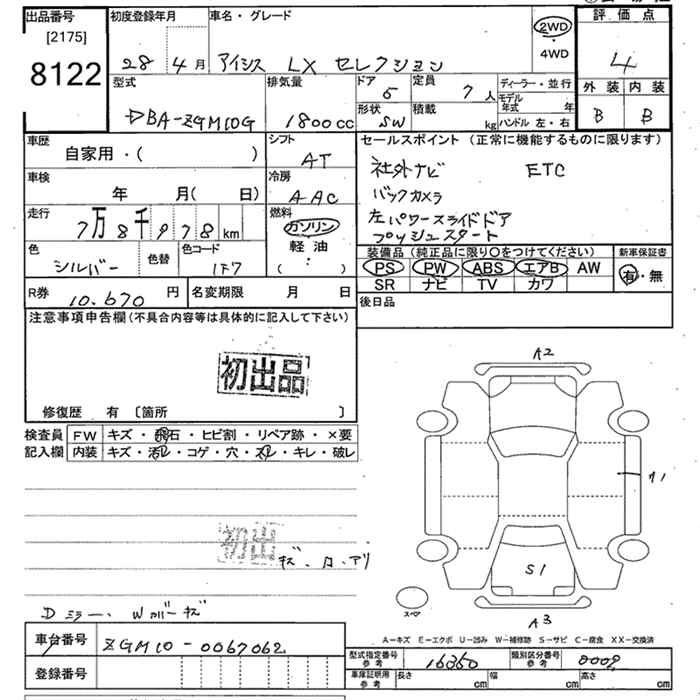 出品番号 初度登録年月 車名・グレード 評価点
[2175]
8122
28 4月 アイシス LX セレクション 2WD 4WD 4
型式 排気量 ドア 5 定員 7人 ディーラー・並行 外装 内装
DBA-ZGM10G 1800cc 形状 SW 積載 kg モデル年式 年 ハンドル 左・右 B B
車歴 シフト セールスポイント (正常に機能するものに限ります)
自家用・( ) AT
車検 冷房 社外ナビ ETC
年 月( 日) AAC バックカメラ
走行 燃料 左パワースライドドア
7万8千978km ガソリン プッシュスタート
色 色替 色コード 軽油 装備品 (純正品に限り○をつけてください) 新車保証書
シルバー 1F7 ( : ) PS PW ABS エアB AW 有・無
SR ナビ TV カワ
R券 10.670円 名変期限 月 日 後日品
注意事項申告欄(不具合内容等は具体的に記入して下さい)
初出品
修復歴 有 〔箇所 〕
検査員記入欄 FW キズ・飛石・ヒビ割・リペア跡・×要
内装 キズ・汚レ・コゲ・穴・スレ・キレ・破レ
A2
A1
初出
S1
スペア
A3
Dミラー、Wカバーキズ
A-キズ E-エクボ U-凹み W-補修跡 S-サビ C-腐食 XX-交換済
車台番号 ZGM10-0067062
型式指定番号 参考 16360 類別区分番号 参考 0009
登録番号 車庫証明用 参考 長さ cm 幅 cm 高さ cm